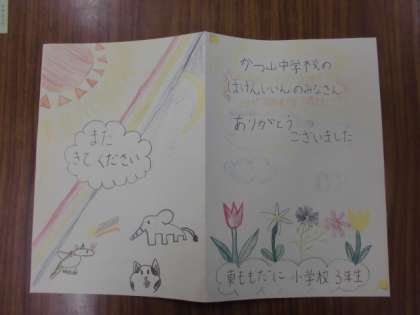 かつ山中学校の
ほけんいいんのみなさん
ありがとう
ございました
東ももだに小学校3年生
また
きてください